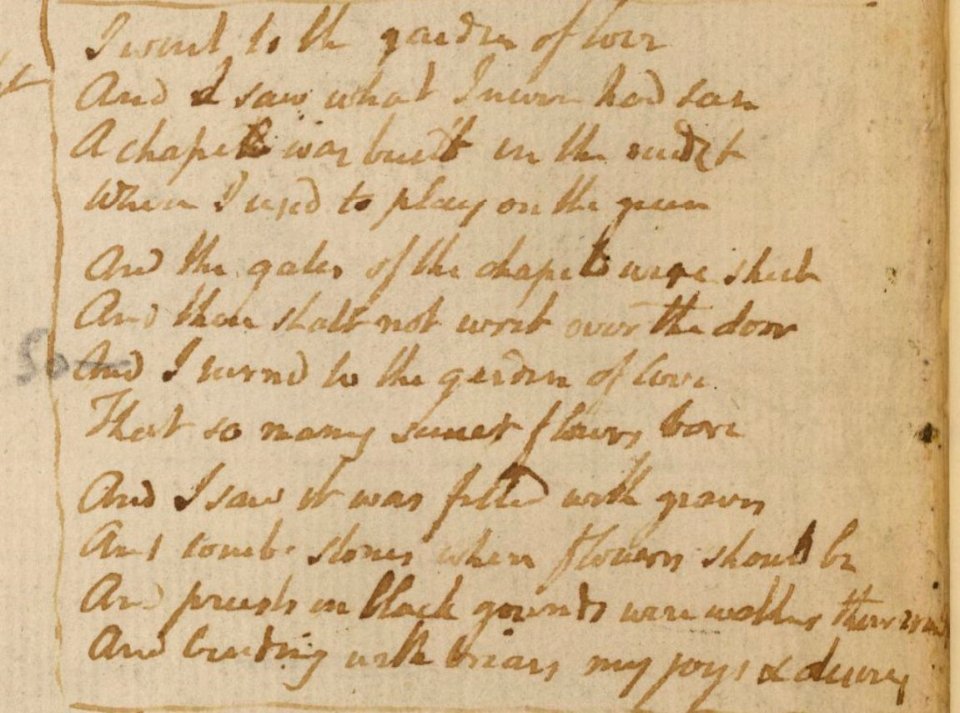 I went to the garden of love
And I saw what I never had seen
A chapel was built in the midst
Where I used to play on the green
And the gates of the chapel were shut
And thou shalt not writ over the door
So And I turnd to the garden of love
That so many sweet flowers bore
And I saw it was filled with graves
And tomb-stones where flowers should be
And priests in black gounds were walking their
And binding with briars my joys & desires